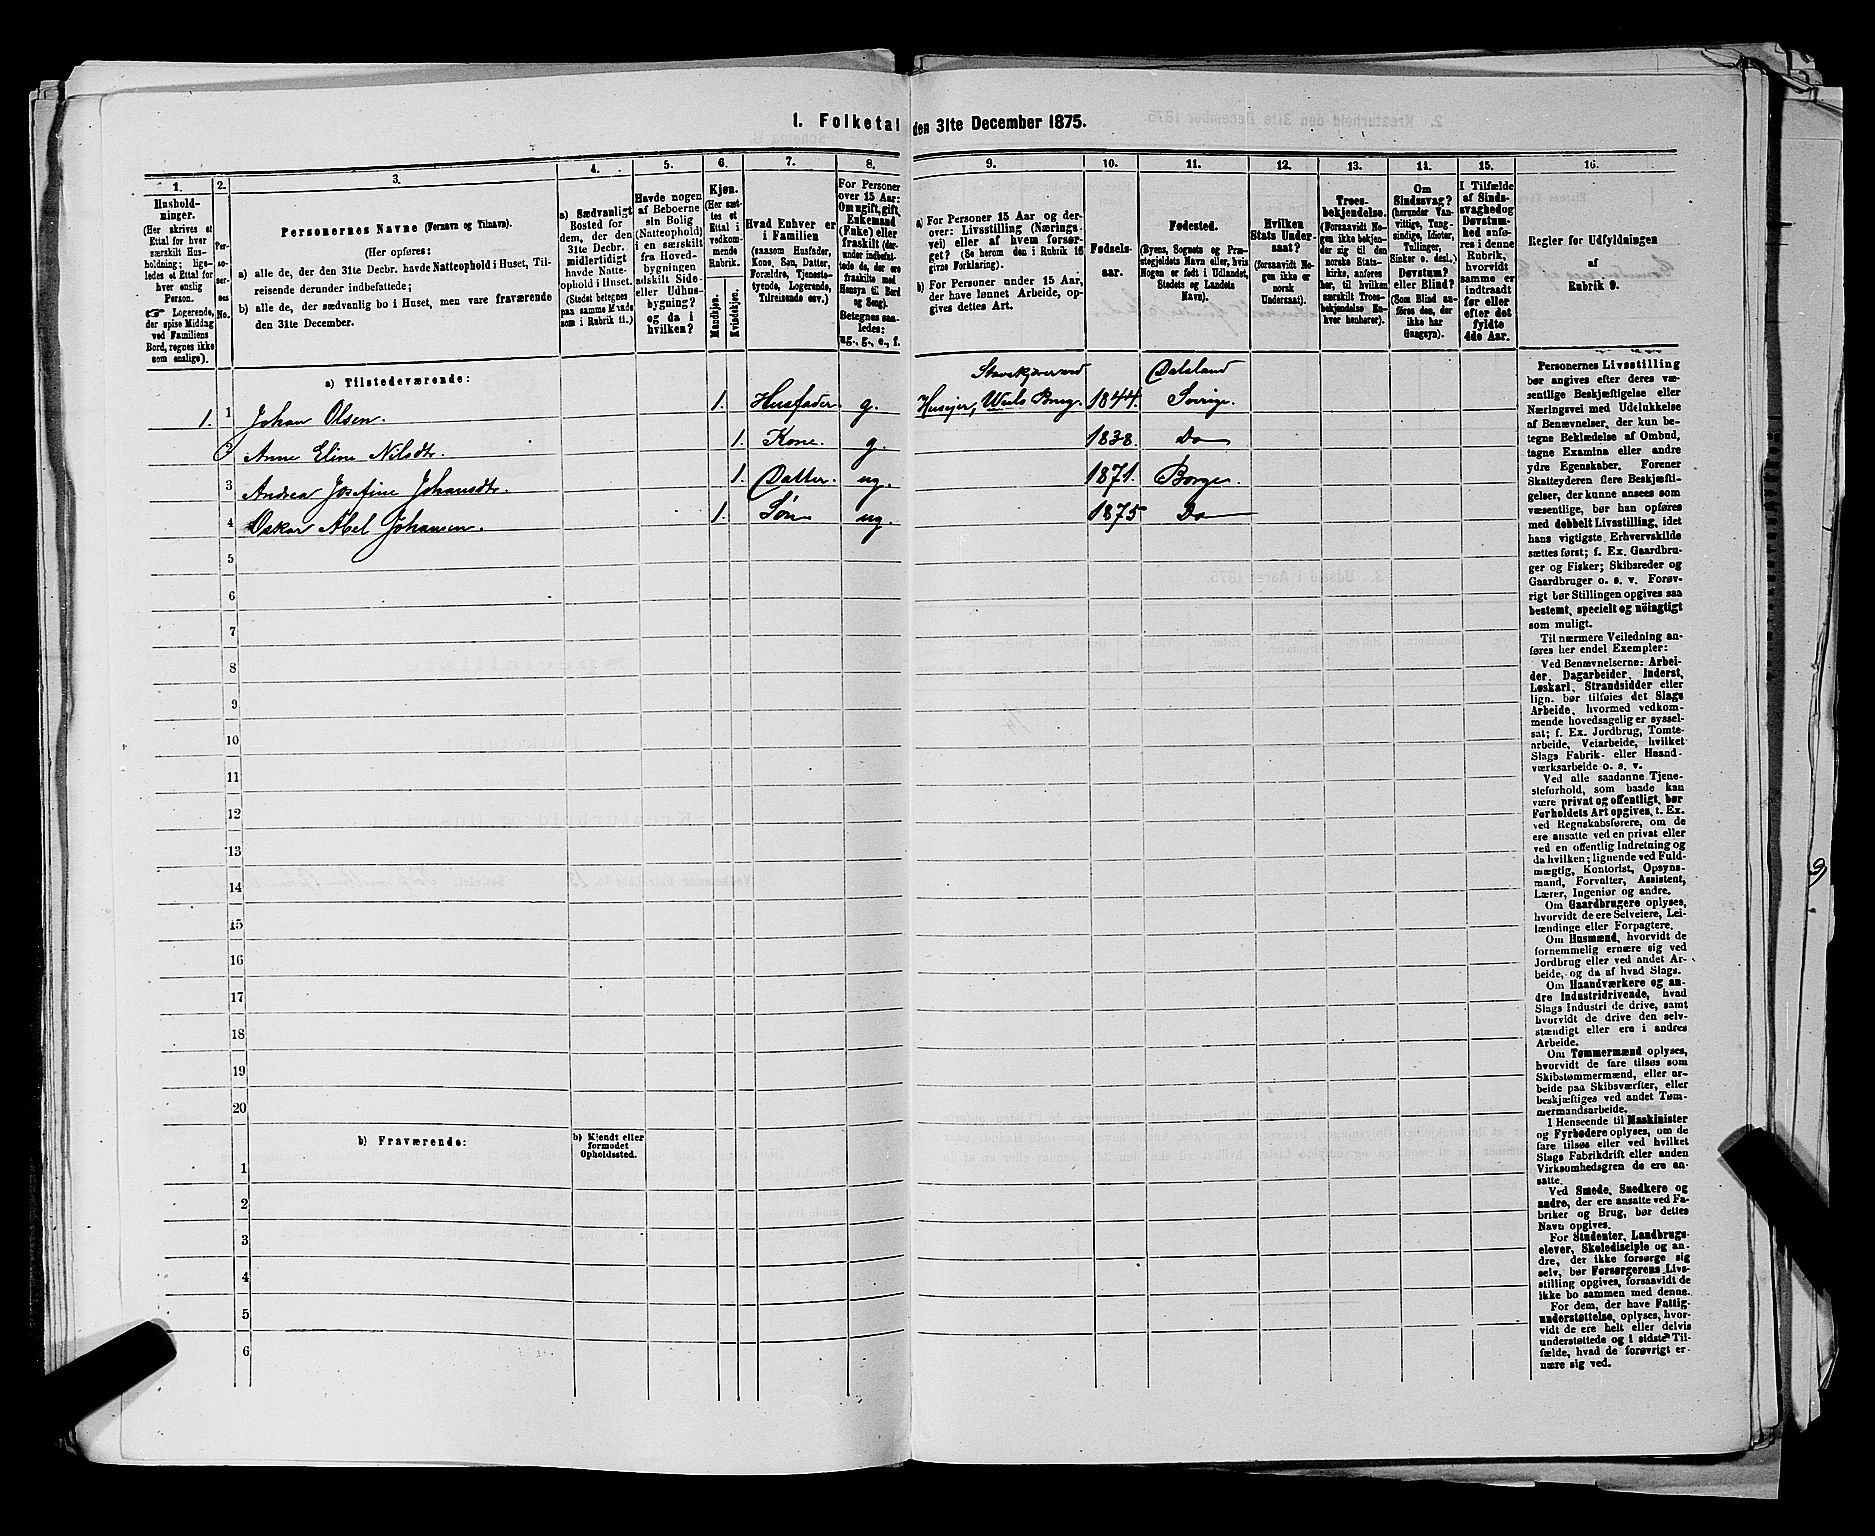 1. Folketal den 31te December 1875.
1.
Hushold-
ninger.
(Her skrives et
Ettal for hver
særskilt Hus-
holdning; lige-
ledes et Ettal for
hver enslig
Person.
☞ Logerende,
der spise Middag
ved Familiens
Bord, regnes ikke
som enslige).
2.
Per-
so-
ner-
nes
No.
3.
Personernes Navne (Fornavn og Tilnavn).
(Her opføres:
a) alle de, der den 31te Decbr. havde Natteophold i Huset, Til-
reisende derunder indbefattede;
b) alle de, der sædvanlig bo i Huset, men vare fraværende
den 31te December.
4.
a) Sædvanligt
Bosted for
dem, der den
31te Decbr.
midlertidigt
havde Natte-
ophold i Huset.
(Stedet betegnes
paa samme Maade
som i Rubrik 11.)
5.
Havde nogen
af Beboerne
sin Bolig
(Natteophold)
i en særskilt
fra Hoved-
bygningen
adskilt Side-
eller Udhus-
bygning?
og da i
hvilken?
6.
Kjøn.
(Her sæt-
tes et
Ettal i
vedkom-
mende
Rubrik.
Mandkjøn.
Kvindekjøn.
7.
Hvad Enhver er
i Familien
(saasom Husfader,
Kone, Søn, Datter,
Forældre, Tjeneste-
tyende, Logerende,
Tilreisende osv.)
8.
For Personer
over 15 Aar:
Om ugift, gift,
Enkemand
(Enke) eller
fraskilt (der-
under indbefat-
tede de, der ere
fraskilte med
Hensyn til Bord
og Seng).
Betegnes saa-
ledes:
ug., g., e., f.
9.
a) For Personer 15 Aar og der-
over: Livsstilling (Nærings-
vei) eller af hvem forsør-
get (Se herom den i Rubrik 16
givne Forklaring).
b) For Personer under 15 Aar,
der have lønnet Arbeide, op-
gives dettes Art.
10.
Fødsels-
aar.
11.
Fødested.
(Byens, Sognets og Præ-
stegjeldets Navn eller, hvis
Nogen er født i Udlandet,
Stedets og Landets
Navn).
12.
Hvilken
Stats Under-
saat?
(forsaavidt No-
gen ikke er
norsk
Undersaat).
13.
Troes-
bekjendelse.
(Forsaavidt No-
gen ikke bekjen-
der sig til den
norske Stats-
kirke, anføres
her, til hvilken
særskilt Troes-
bekjendelse En-
hver henhører).
14.
Om
Sindssvag?
(herunder Van-
vittige, Tung-
sindige, Idioter,
Tullinger,
Sinker o. desl.)
Døvstum?
eller Blind?
(Som Blind an-
føres den, der
ikke har
Gangsyn).
15.
I Tilfælde
af Sinds-
svaghed og
Døvstum-
hed anfø-
res i denne
Rubrik,
hvorvidt
samme er
indtraadt
før eller
efter det
fyldte
4de Aar.
16.
Regler for Udfyldningen
af
Rubrik 9.
a) Tilstedeværende:
1. 1 Johan Olsen. 1. Husfader. g. Huseier, 1844. Dalsland Sverige.
2 Anne Eline Nilsdtr. 1. Kone. g. 1838. Do
3 Andrea Josefine Johansdtr. 1. Datter. ug. 1871. Borge.
4 Oskar Abel Johansen. 1. Søn ug. 1875 Do
5
6
7
8
9
10
11
12
13
14
15
16
17
18
19
20
b) Fraværende:
b) Kjendt eller
formodet
Opholdssted.
1
2
3
4
5
6
Personernes Livsstilling
bør angives efter deres væ-
sentlige Beskjæftigelse eller
Næringsvei med Udelukkelse
af Benævnelser, der kun be-
tegne Beklædelse af Ombud,
tagne Examina eller andre
ydre Egenskaber. Forener
Skatteyderen flere Beskjæfti-
gelser, der kunne ansees som
væsentlige, bør han opføres
med dobbelt Livsstilling, idet
hans vigtigste Erhvervskilde
sættes først; f. Ex. Gaardbru-
ger og Fisker; Skibsreder og
Gaardbruger o. s. v. Forøv-
rigt bør Stillingen opgives saa
bestemt, specielt og nöiagtigt
som muligt.
Til nærmere Veiledning an-
føres her endel Exempler:
Ved Benævnelserne: Arbei-
der, Dagarbeider, Inderst,
Løskarl, Strandsidder eller
lign. bør tilføies det Slags
Arbeide, hvormed vedkom-
mende hovedsagelig er syssel-
sat; f. Ex. Jordbrug, Tomte-
arbeide, Veiarbeide, hvilket
Slags Fabrik- eller Haand-
værksarbeide o. s. v.
Ved alle saadanne Tjene-
steforhold, som baade kan
være privat og offentligt, bør
Forholdets Art opgives, t. Ex.
ved Regnskabsførere, om de
ere ansatte ved en privat eller
ved en offentlig Indretning og
da hvilken; lignende ved Fuld-
mægtig, Kontorist, Opsyns-
mand, Forvalter, Assistent,
Lærer, Ingeniør og andre.
Om Gaardbrugere oplyses,
hvorvidt de ere Selveiere, Lei-
lændinge eller Forpagtere.
Om Husmænd, hvorvidt de
fornemmelig ernære sig ved
Jordbrug eller ved andet Ar-
beide, og da af hvad Slags.
Om Haandværkere og an-
dre Industridrivende, hvad
Slags Industri de drive, samt
hvorvidt de drive den selv-
stændigt eller ere i andres
Arbeide.
Om Tømmermænd oplyses,
hvorvidt de fare tilsøs som
Skibstømmermænd, eller ar-
beide paa Skibsværfter, eller
beskjæftiges ved andet Tøm-
mermandsarbeide.
I Henseende til Maskinister
og Fyrbødere oplyses, om de
fare tilsøs eller ved hvilket
Slags Fabrikdrift eller anden
Virksomhedsgren de ere an-
satte.
Ved Smede, Snedkere og
andre, der ere ansatte ved Fa-
briker og Brug, bør dettes
Navn opgives.
For Studenter, Landbrugs-
elever, Skoledisciple og an-
dre, der ikke forsørge sig
selv, bør Forsørgerens Livs-
stilling opgives, forsaavidt de
ikke bo sammen med denne.
For dem, der have Fattig-
understøttelse, oplyses, hvor-
vidt de ere helt eller delvis
understøttede og i sidste Til-
fælde, hvad de forøvrigt er-
nære sig ved.